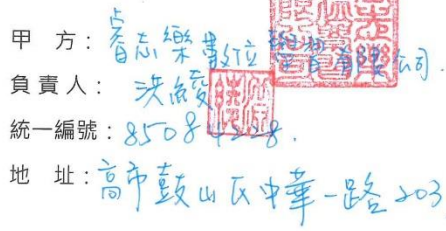 甲 方：睿志樂數位有限公司.
負責人：洪綾
統一編號：85084228.
地 址：高市鼓山區中華一路203